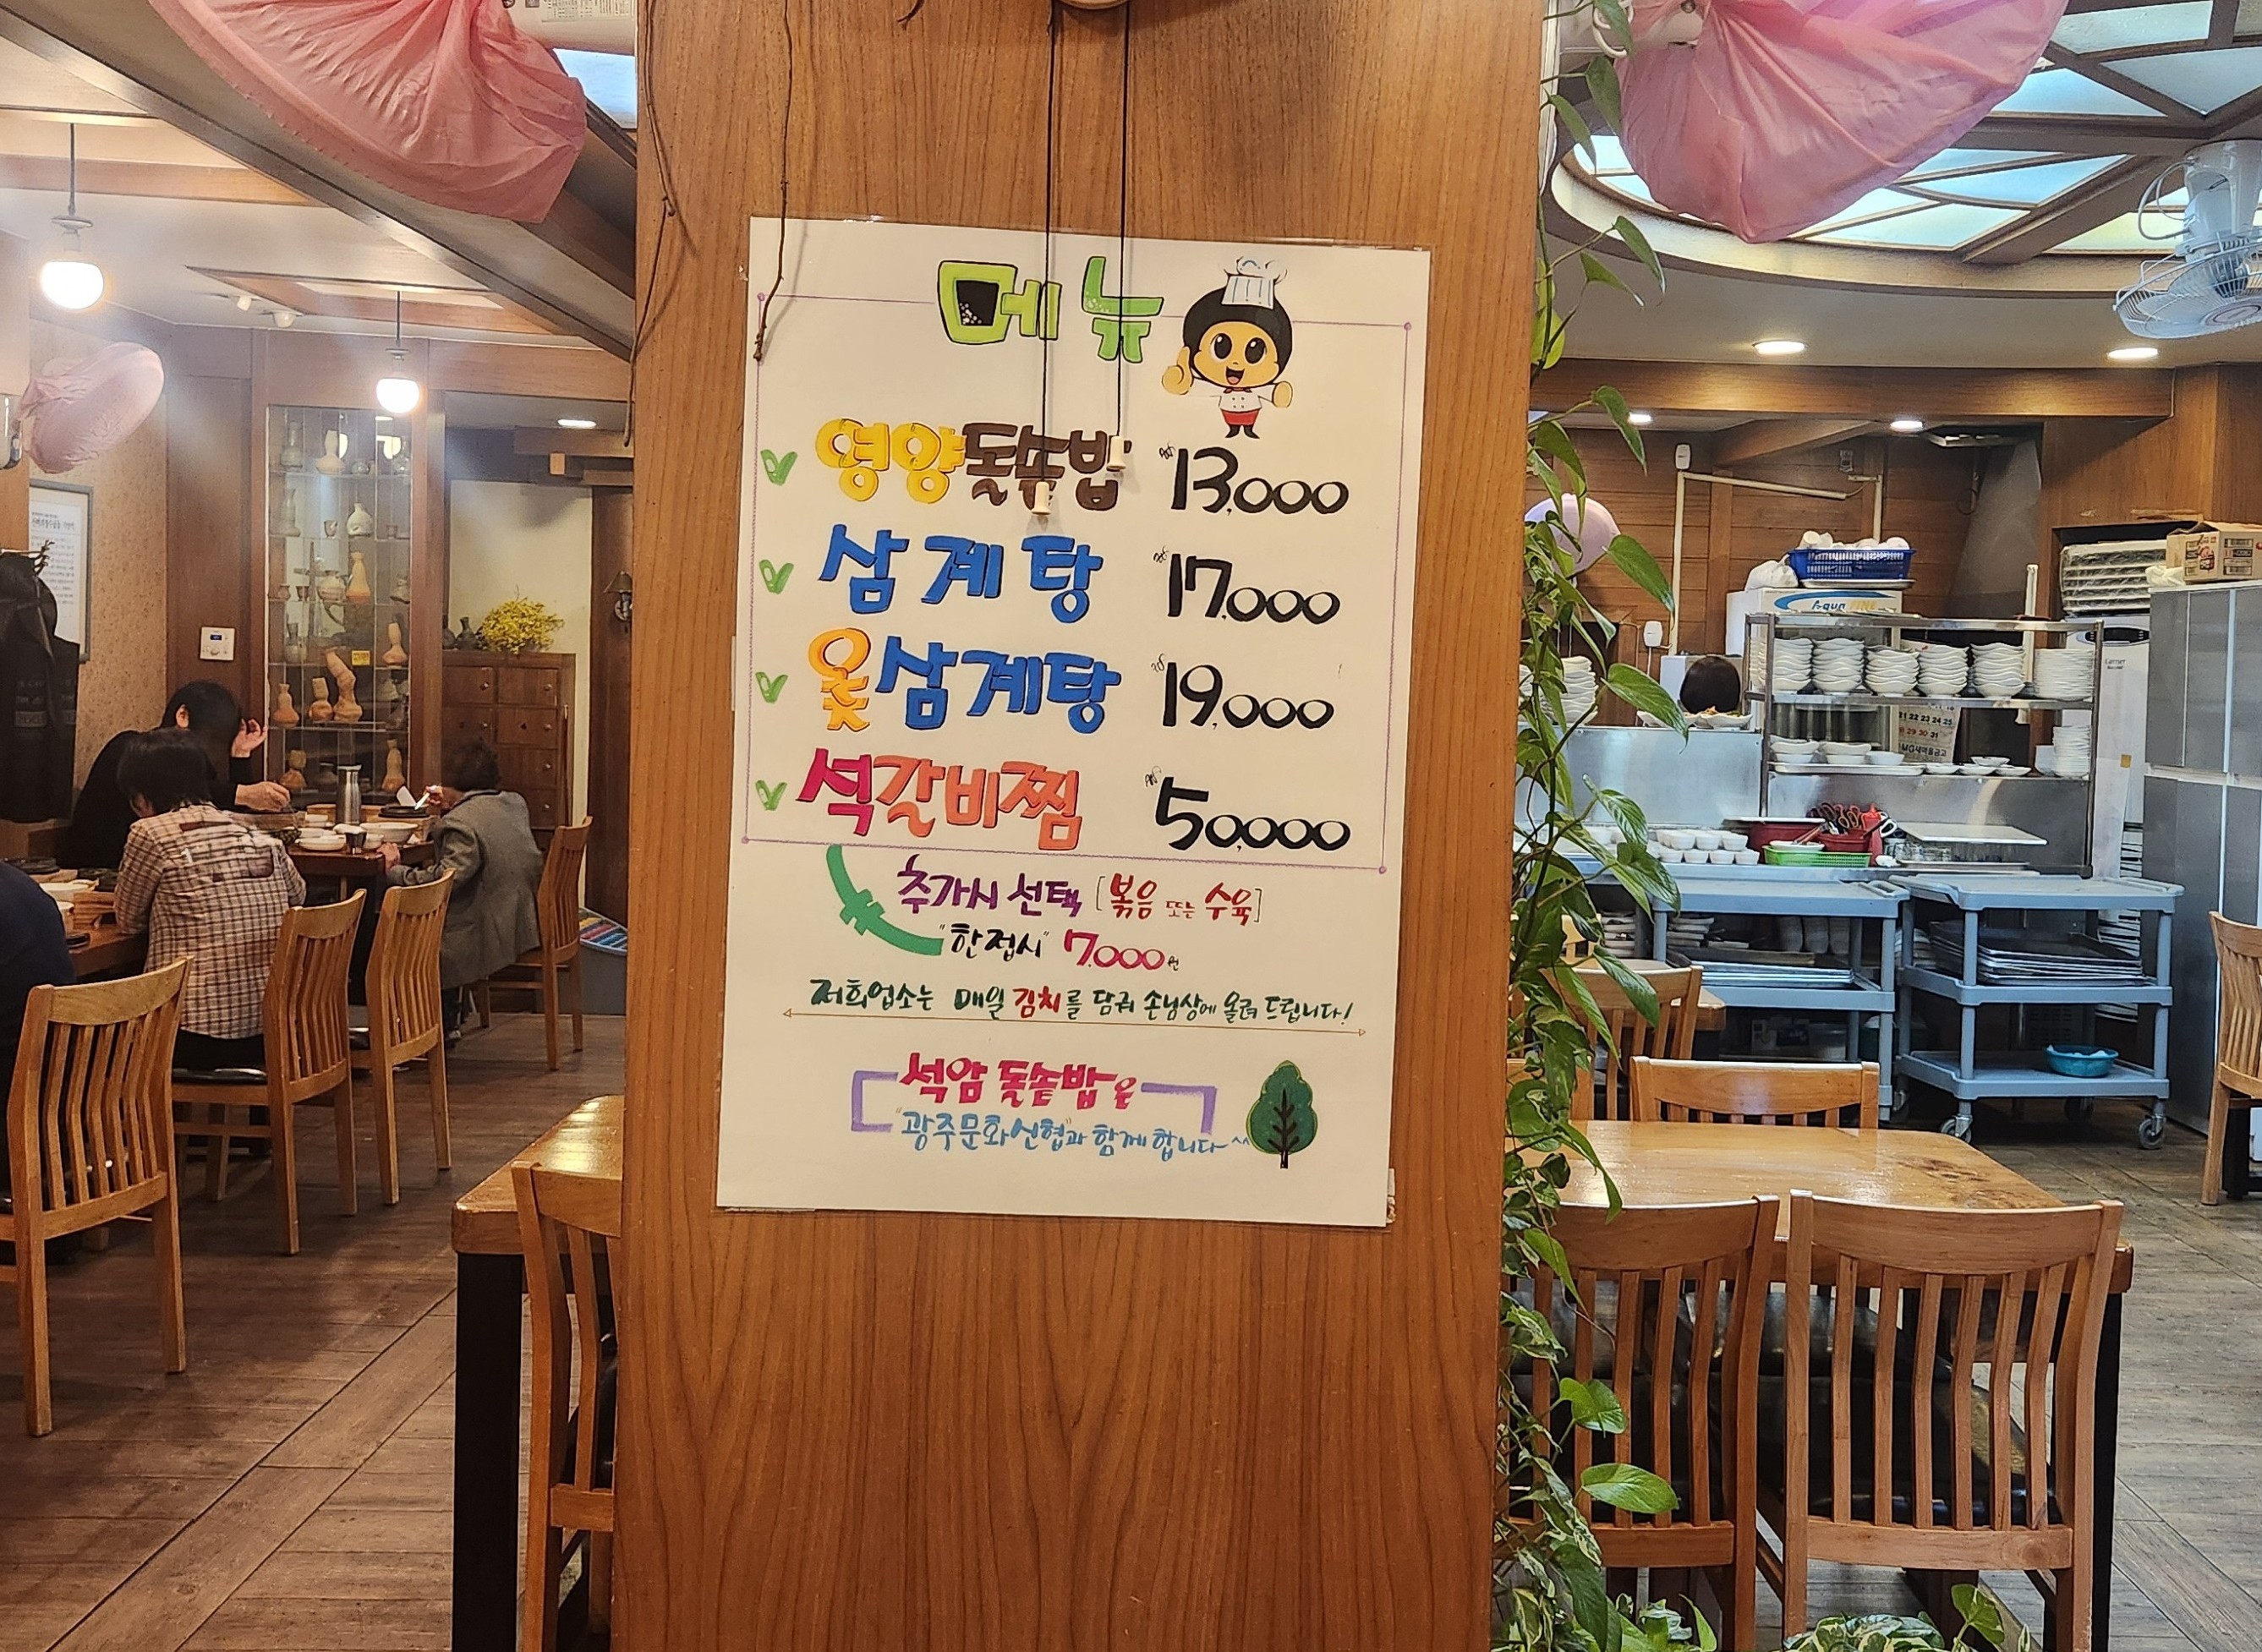 메뉴
영양돌솥밥 13,000
삼계탕 17,000
옻삼계탕 19,000
석갈비찜 50,000
추가시 선택 [볶음 또는 수육]
"한접시" 7,000원
저희업소는 매일 김치를 담궈 손님상에 올려 드립니다!
석암 돌솥밥은
"광주문화신협"과 함께 합니다^^
Aqua FINE
Carrier
21 22 23 24 25
29 30 31
MG새마을금고